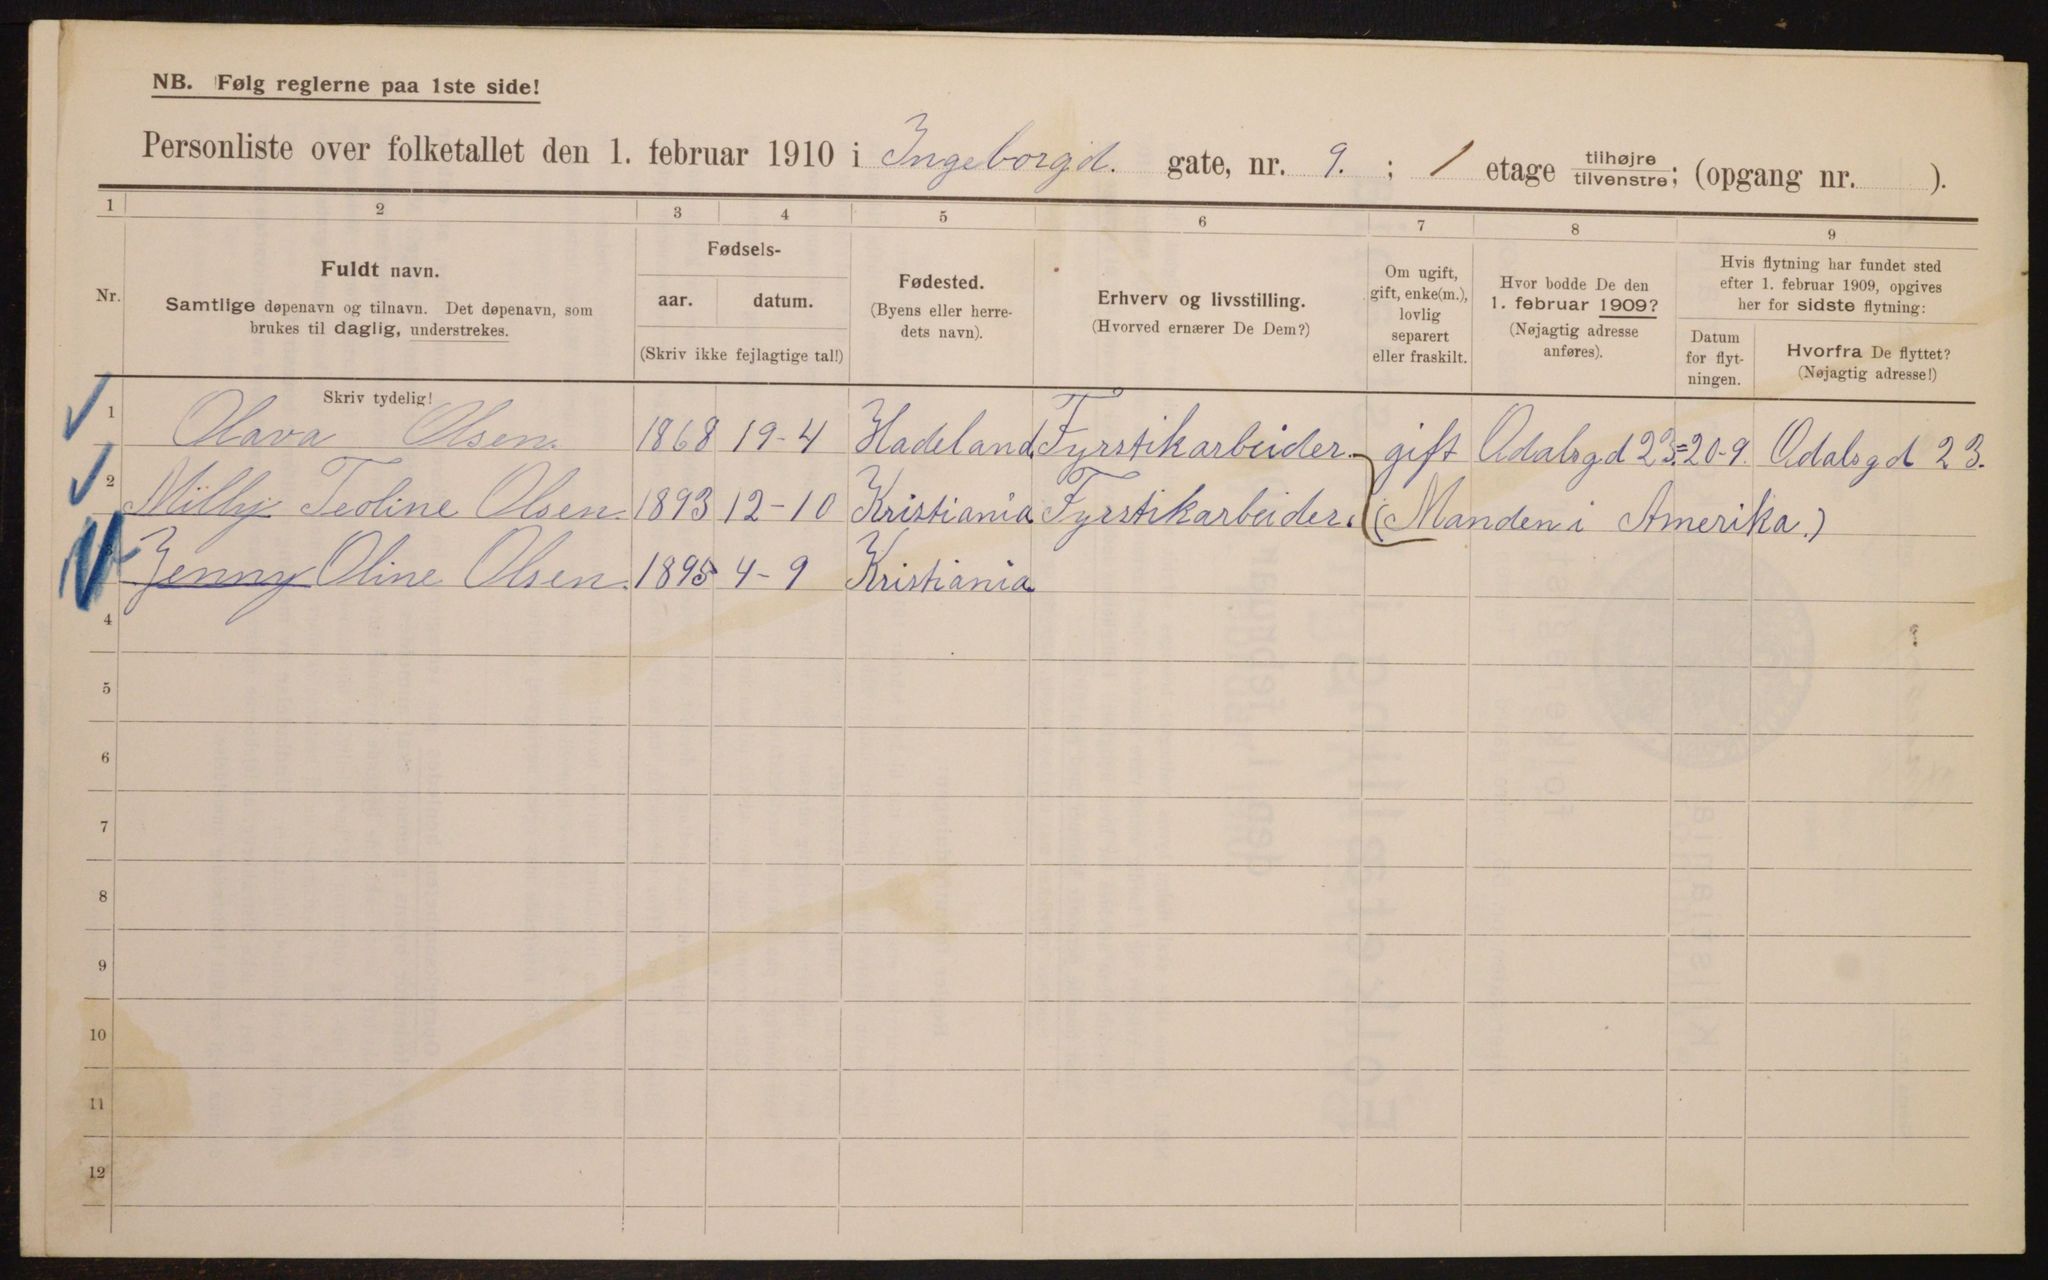 NB. Følg reglerne paa 1ste side!
Personliste over folketallet den 1. februar 1910 i Ingeborgd. gate, nr. 9. ; 1 etage tilhøjre/tilvenstre; (opgang nr. ).
1 2 3 4 5 6 7 8 9
Nr.
Fuldt navn.
Samtlige døpenavn og tilnavn. Det døpenavn, som
brukes til daglig, understrekes.
Fødsels-
aar. datum.
(Skriv ikke fejlagtige tal!)
Fødested.
(Byens eller herre-
dets navn).
Erhverv og livsstilling.
(Hvorved ernærer De Dem?)
Om ugift,
gift, enke(m.),
lovlig
separert
eller fraskilt.
Hvor bodde De den
1. februar 1909?
(Nøjagtig adresse
anføres).
Hvis flytning har fundet sted
efter 1. februar 1909, opgives
her for sidste flytning:
Datum
for flyt-
ningen.
Hvorfra De flyttet?
(Nøjagtig adresse!)
Skriv tydelig!
1 Olava Olsen. 1868 19-4 Hadeland. Fyrstikarbeider. gift Odalsgd 23. 20-9. Odalsgd 23.
2 Milly Teoline Olsen. 1893 12-10 Kristiania Fyrstikarbeider. (Manden i Amerika.)
3 Jenny Oline Olsen. 1895 4-9 Kristiania.
4
5
6
7
8
9
10
11
12